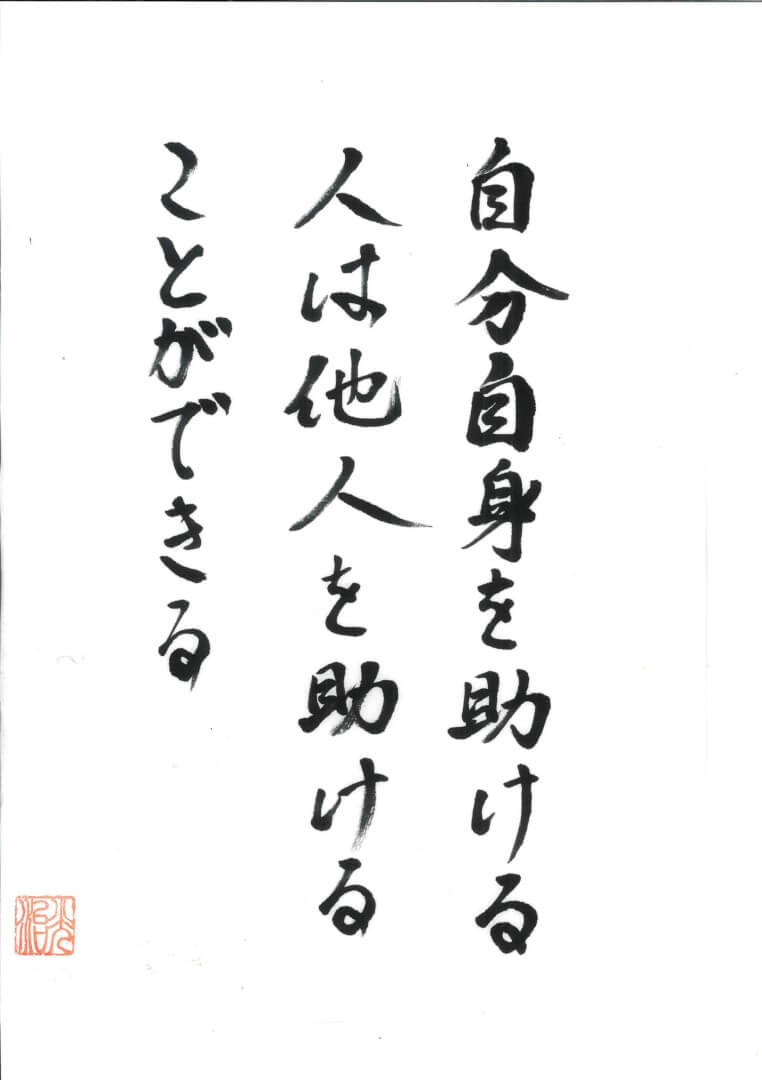 自分自身を助ける
人は他人を助ける
ことができる